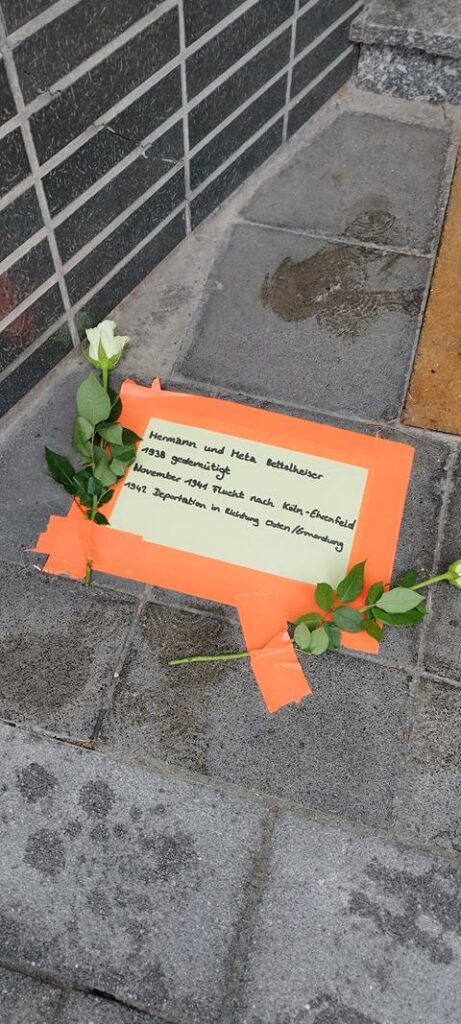 Hermann und Meta Bettelheiser
1938 gedemütigt
November 1941 Flucht nach Köln-Ehrenfeld
1942 Deportation in Richtung Osten/Ermordung